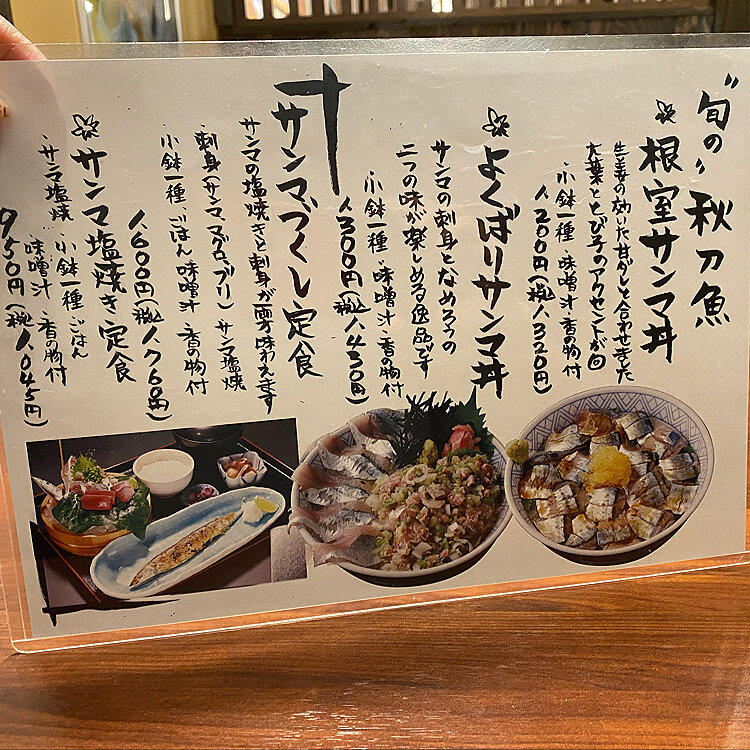 "旬の"秋刀魚
根室サンマ丼
生姜の効いた甘ダレと合わせました
大葉ととび子のアクセントが◎
小鉢一種・味噌汁・香の物付
1,200円(税込1,320円)
よくばりサンマ丼
サンマの刺身となめろうの
二つの味が楽しめる逸品です
小鉢一種・味噌汁・香の物付
1,300円(税込1,430円)
サンマづくし定食
サンマの塩焼きと刺身が両方味わえます
刺身(サンマ、マグロ、ブリ) サンマ塩焼
小鉢一種 ごはん 味噌汁 香の物付
1,600円(税込1,760円)
サンマ塩焼き定食
サンマ塩焼 小鉢一種 ごはん
味噌汁 香の物付
950円(税込1,045円)